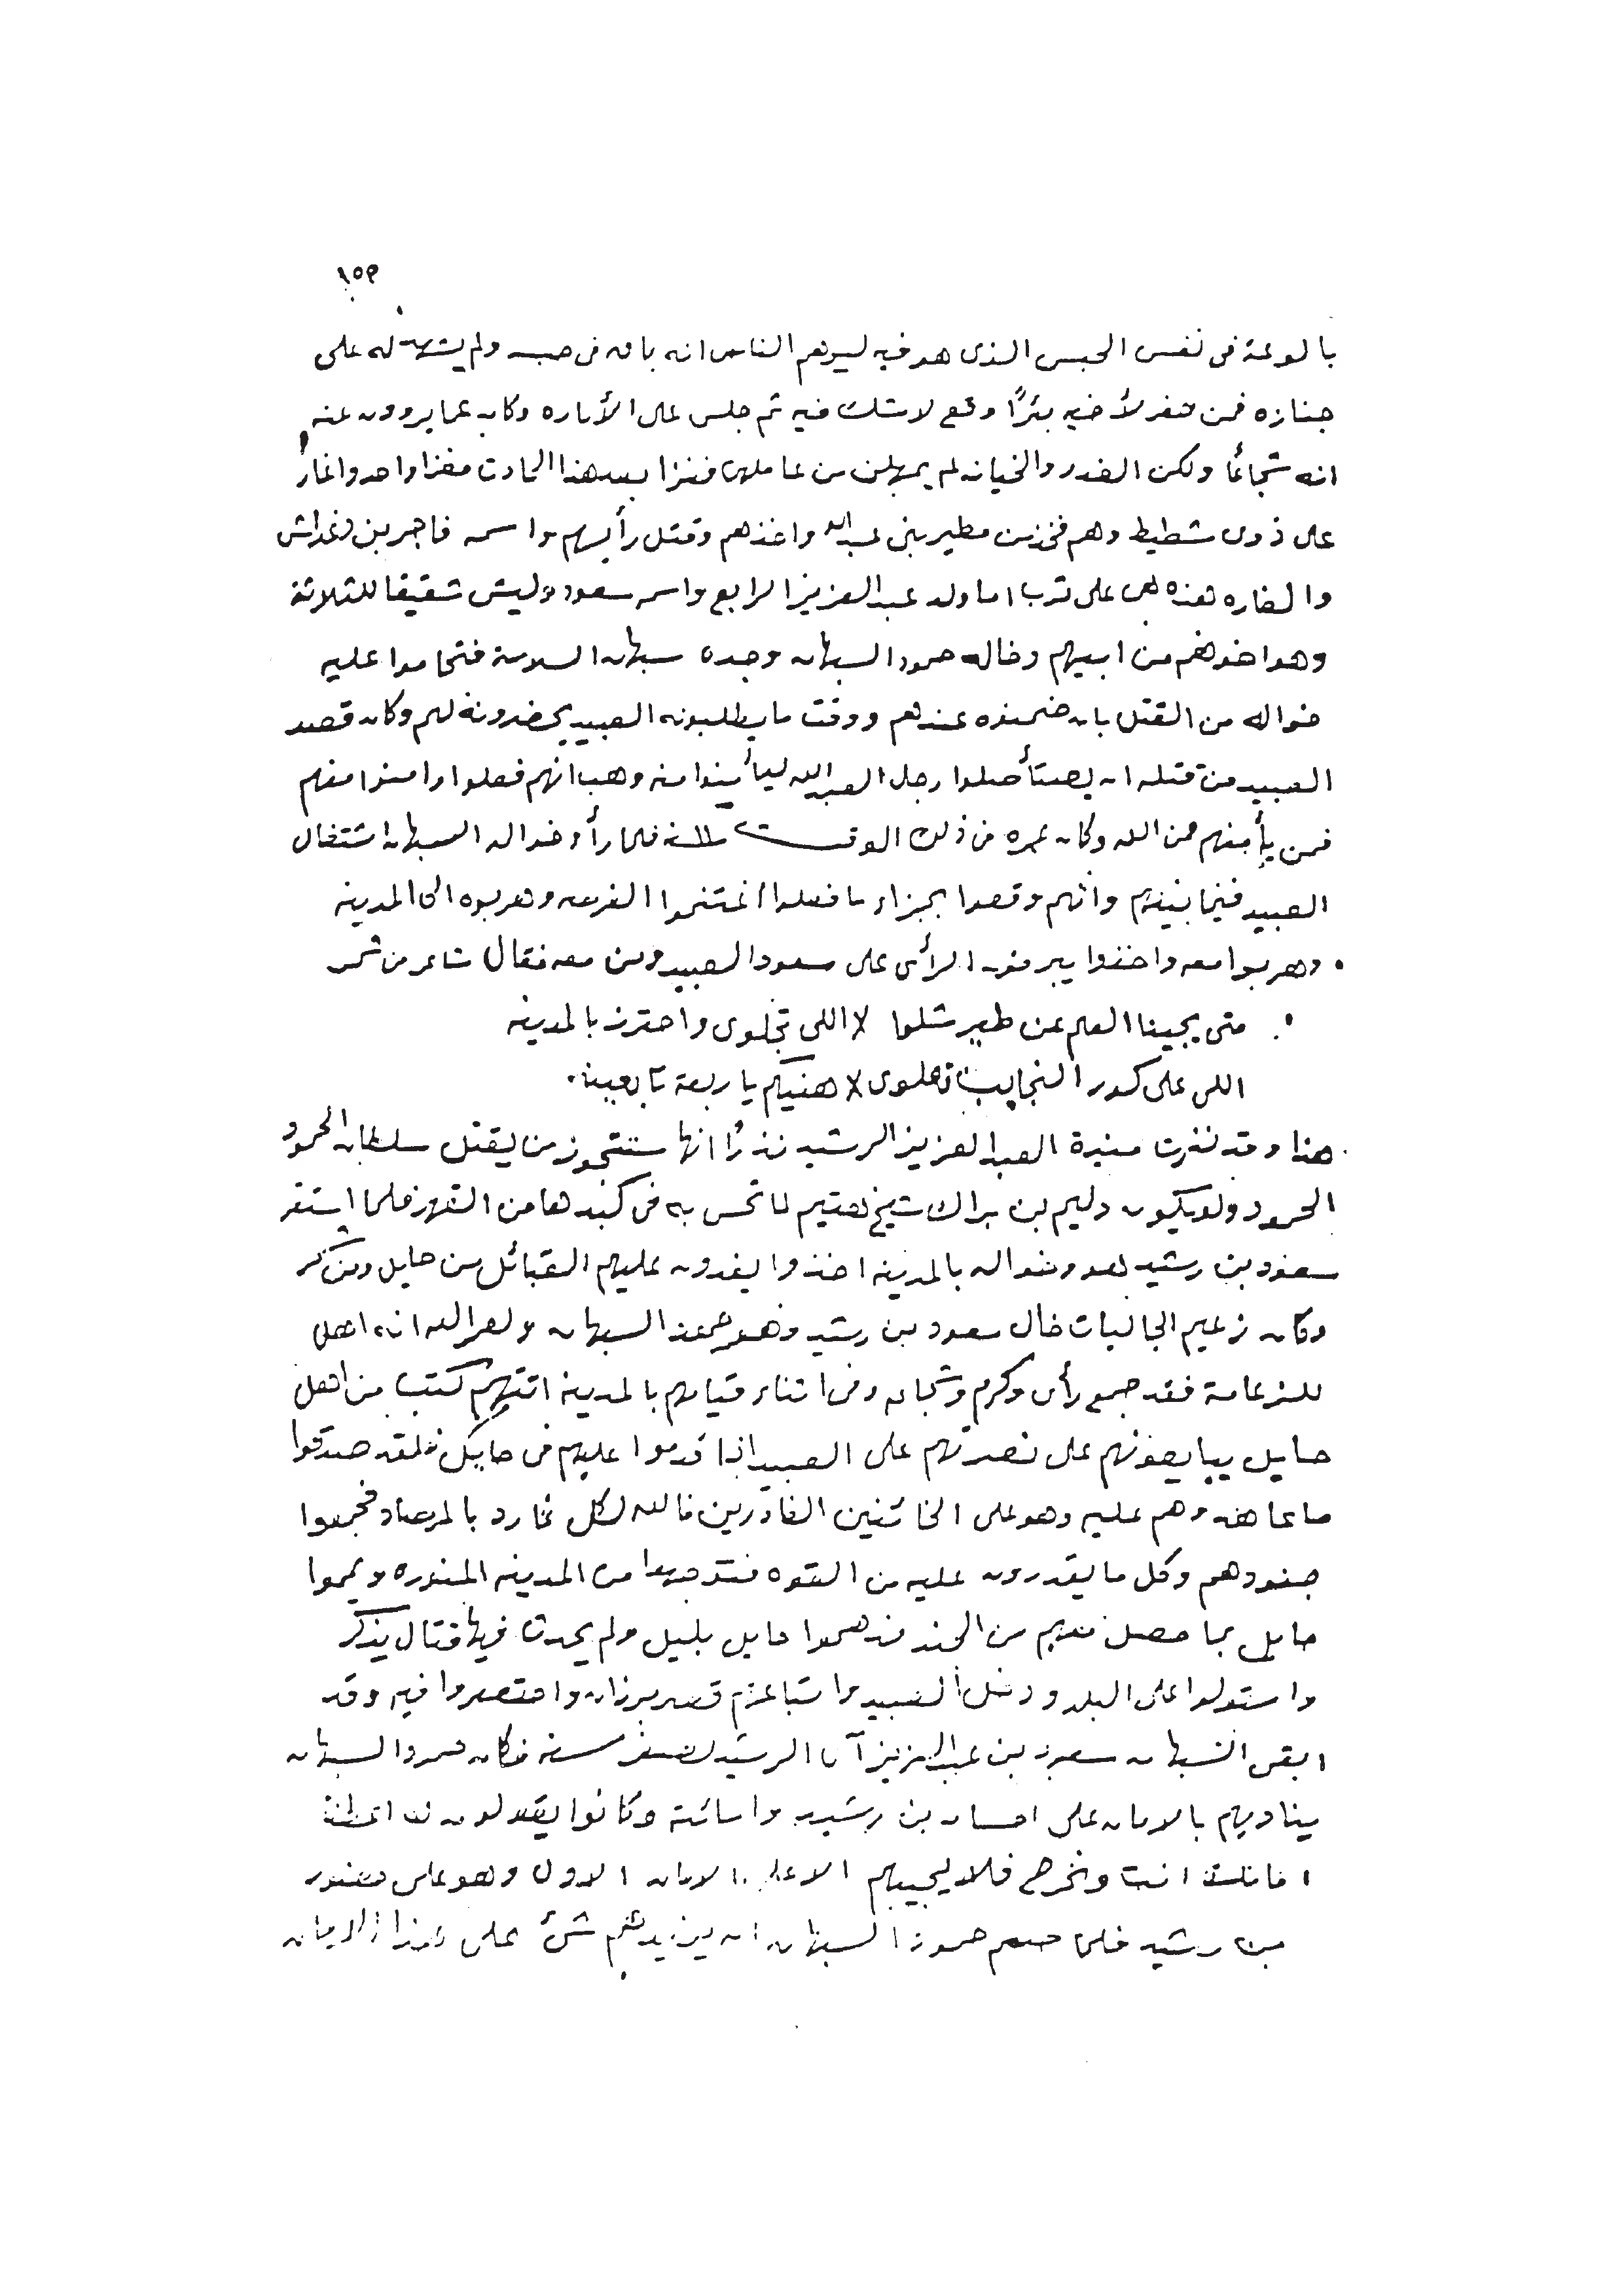 ١٥٩
بالوعة فى نفس الحبس الذى هو فيه ليوهم الناس انه باق فى حبسه ولم يشهد له على
جنازه فمن حفر لأخيه بئرًا وقع لاشك فيه ثم جلس على الأماره وكان عما يروون عنه
انه شجاعًا ولكن الغدر والخيانه لم يمهلن من عاملهن فغزا بعد هذا الحادث مغزا واحد واغار
على ذوى شطيط وهم فخذ من مطير بنى عبدالله واخذهم وقتل رأيسهم واسمه فاجر بن
والغاره هذه هى على ترب اما ولد عبدالعزيز الرابع واسمه سعود وليس شقيقا للثلاثة
وهو اخوهم من ابيهم وخاله حمود السبهان وجده سبهان السلامة فتحاموا عليه
خواله من القتل بان ضمنوه عندهم ووقت ما يطلبونه العبيد يحضرونه لهم وكان قصد
العبيد من قتله ان يستأصلوا رجل العبدالله ليأمنوا منه وهب انهم فعلوا وامنوا منهم
فمن يأمنهم من الله وكان عمره فى ذلك الوقت سنه فلما رأو خواله السبهان اشتغال
العبيد فيما بينهم وانهم وقعوا بجزاء ما فعلوا اغتنموا الفرصه وهربوه الى المدينه
وهربوا معه واخذوا يبرمون الرأى على سعود العبيد ومن معه فقال شاعر من شمر
متى يجينا العلم عن طير شلوا لا اللى تجلوى واحترز بالمدينه
اللى على كور النجايب تعلوى لا هنيكم يا ربعة تابعينه
هذا وقد نذرت منيرة العبدالعزيز الرشيد نذرًا انها ستتجوز من يقتل سلطان الحمود
الحمود ولو يكون دليم بن براك شيخ هتيم لما تحس به فى كبدها من القهر فلما استقر
سعود بن رشيد هو وخواله بالمدينه اخذوا يفدون عليهم القبائل من حايل ومن شمر
وكان زعيم الجاليات خال سعود بن رشيد وهو حمود السبهان ولعمر الله انه اهلى
للزعامة فقد جمع رأى وكرم وشجاعه وفى اثناء قيامهم بالمدينه اتتهم كتب من اهل
حايل يبايعونهم على نصرتهم على العبيد اذا قدموا عليهم فى حايل فلقد صدقوا
ما عاهدوهم عليه وهو على الخائنين الغادرين فالله لكل مارد بالمرصاد فجمعوا
جنودهم وكل ما يقدرون عليه من القوه فتوجهوا من المدينه المنوره ويمموا
حايل بما حصل معهم من الجند فدهموا حايل بليل ولم يحدث فيها قتال يذكر
واستولوا على البلد ودخل العبيد واتباعهم قصر برزان واحتصروا فيه وقد
ابقى السبهان سعود بن عبدالعزيز آل الرشيد لصغر سنه فكان حمود السبهان
يناديهم بالامان على احسان بن رشيد واسائته وكانوا يقولون له اعطنا
امانك انت ونخرج فلا يجيبهم الا على الامان الاول وهو على سعود
بن رشيد فلما صمم حمود السبهان ان يزيدهم شئ على هذا الامان